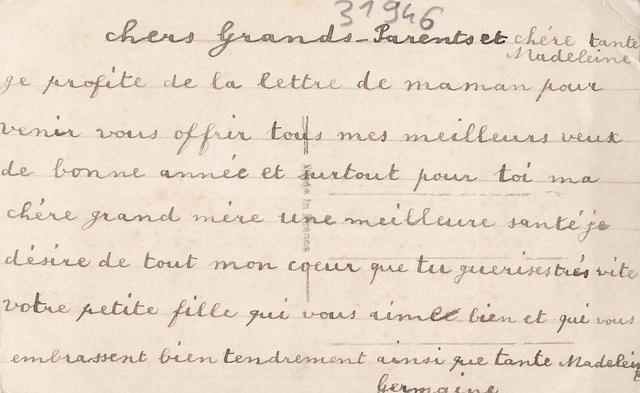 31946
chers Grands-Parents et chére tante
Madeleine
ge profite de la lettre de maman pour
venir vous offrir tous mes meilleurs veux
de bonne année et surtout pour toi ma
chére grand mére une meilleure santé je
désire de tout mon coeur que tu guerises trés vite
votre petite fille qui vous aime bien et qui vous
embrassent bien tendrement ainsi que tante Madelein
Germaine
Made in France